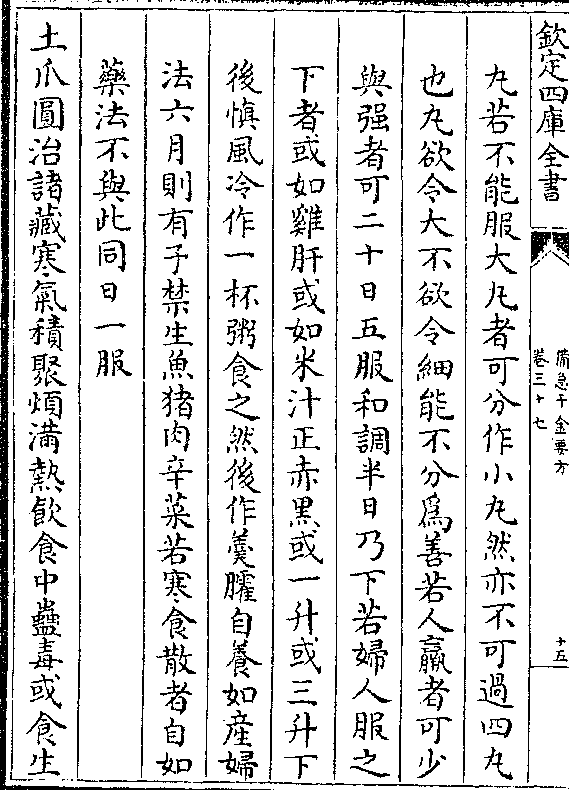 欽定四庫全書
備急千金要方
卷三十七
十五
丸若不能服大丸者可分作小丸然亦不可過四丸
也丸欲令大不欲令細能不分爲善若人羸者可少
與强者可二十日五服和調半日乃下若婦人服之
下者或如雞肝或如米汁正赤黑或一升或三升下
後慎風冷作一杯粥食之然後作羹臛自養如産婦
法六月則有子禁生魚猪肉辛菜若寒食散者自如
藥法不與此同日一服
土爪圓治諸藏寒氣積聚煩满熱飲食中蠱毒或食生